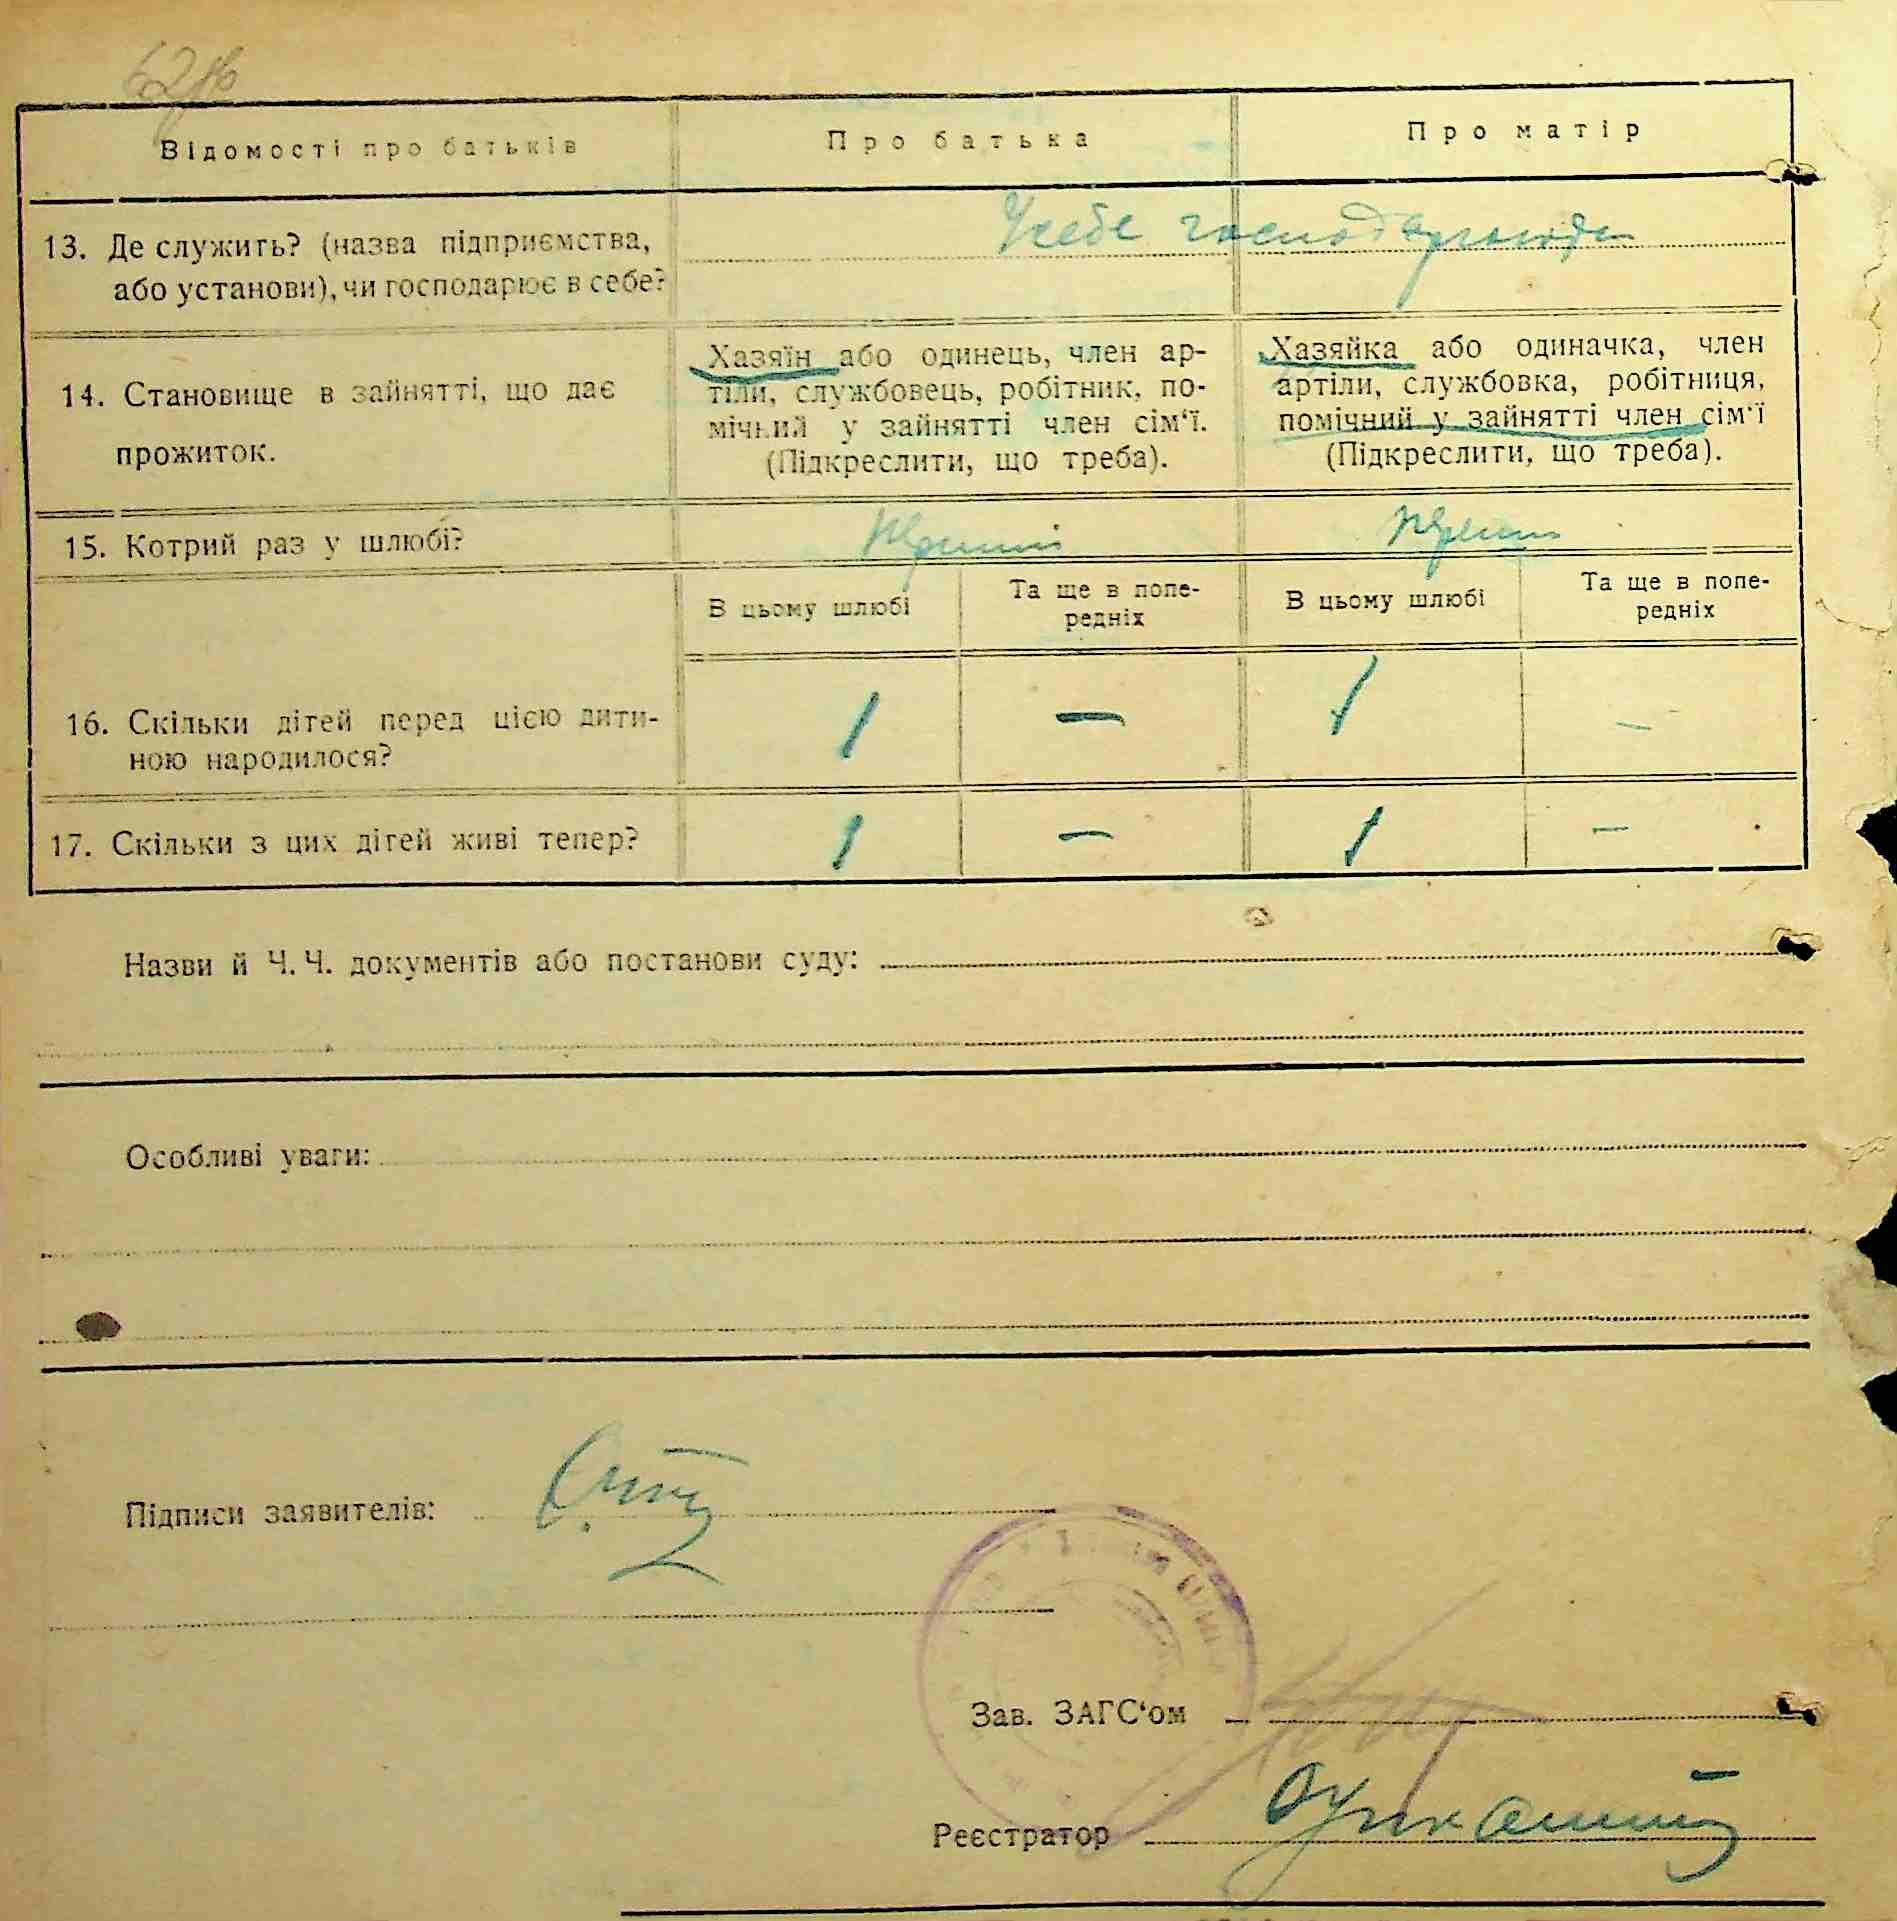 Відомості про батьків
Про батька
Про матір
13. Де служить? (назва підприємства,
або установи), чи господарює в себе?
У себе господарюють
14. Становище в зайнятті, що дає
прожиток.
Хазяїн або одинець, член ар-
тіли, службовець, робітник, по-
мічний у зайнятті член сім‘ї.
(Підкреслити, що треба).
Хазяйка або одиначка, член
артіли, службовка, робітниця,
помічний у зайнятті член сім‘ї
(Підкреслити, що треба).
15. Котрий раз у шлюбі?
В цьому шлюбі
Та ще в попе-
редніх
В цьому шлюбі
Та ще в попе-
редніх
16. Скільки дітей перед цією дити-
ною народилося?
1 — 1 —
17. Скільки з цих дітей живі тепер?
1 — 1 —
Назви й Ч. Ч. документів або постанови суду:
Особливі уваги:
Підписи заявителів:
Зав. ЗАГС‘ом
Реєстратор